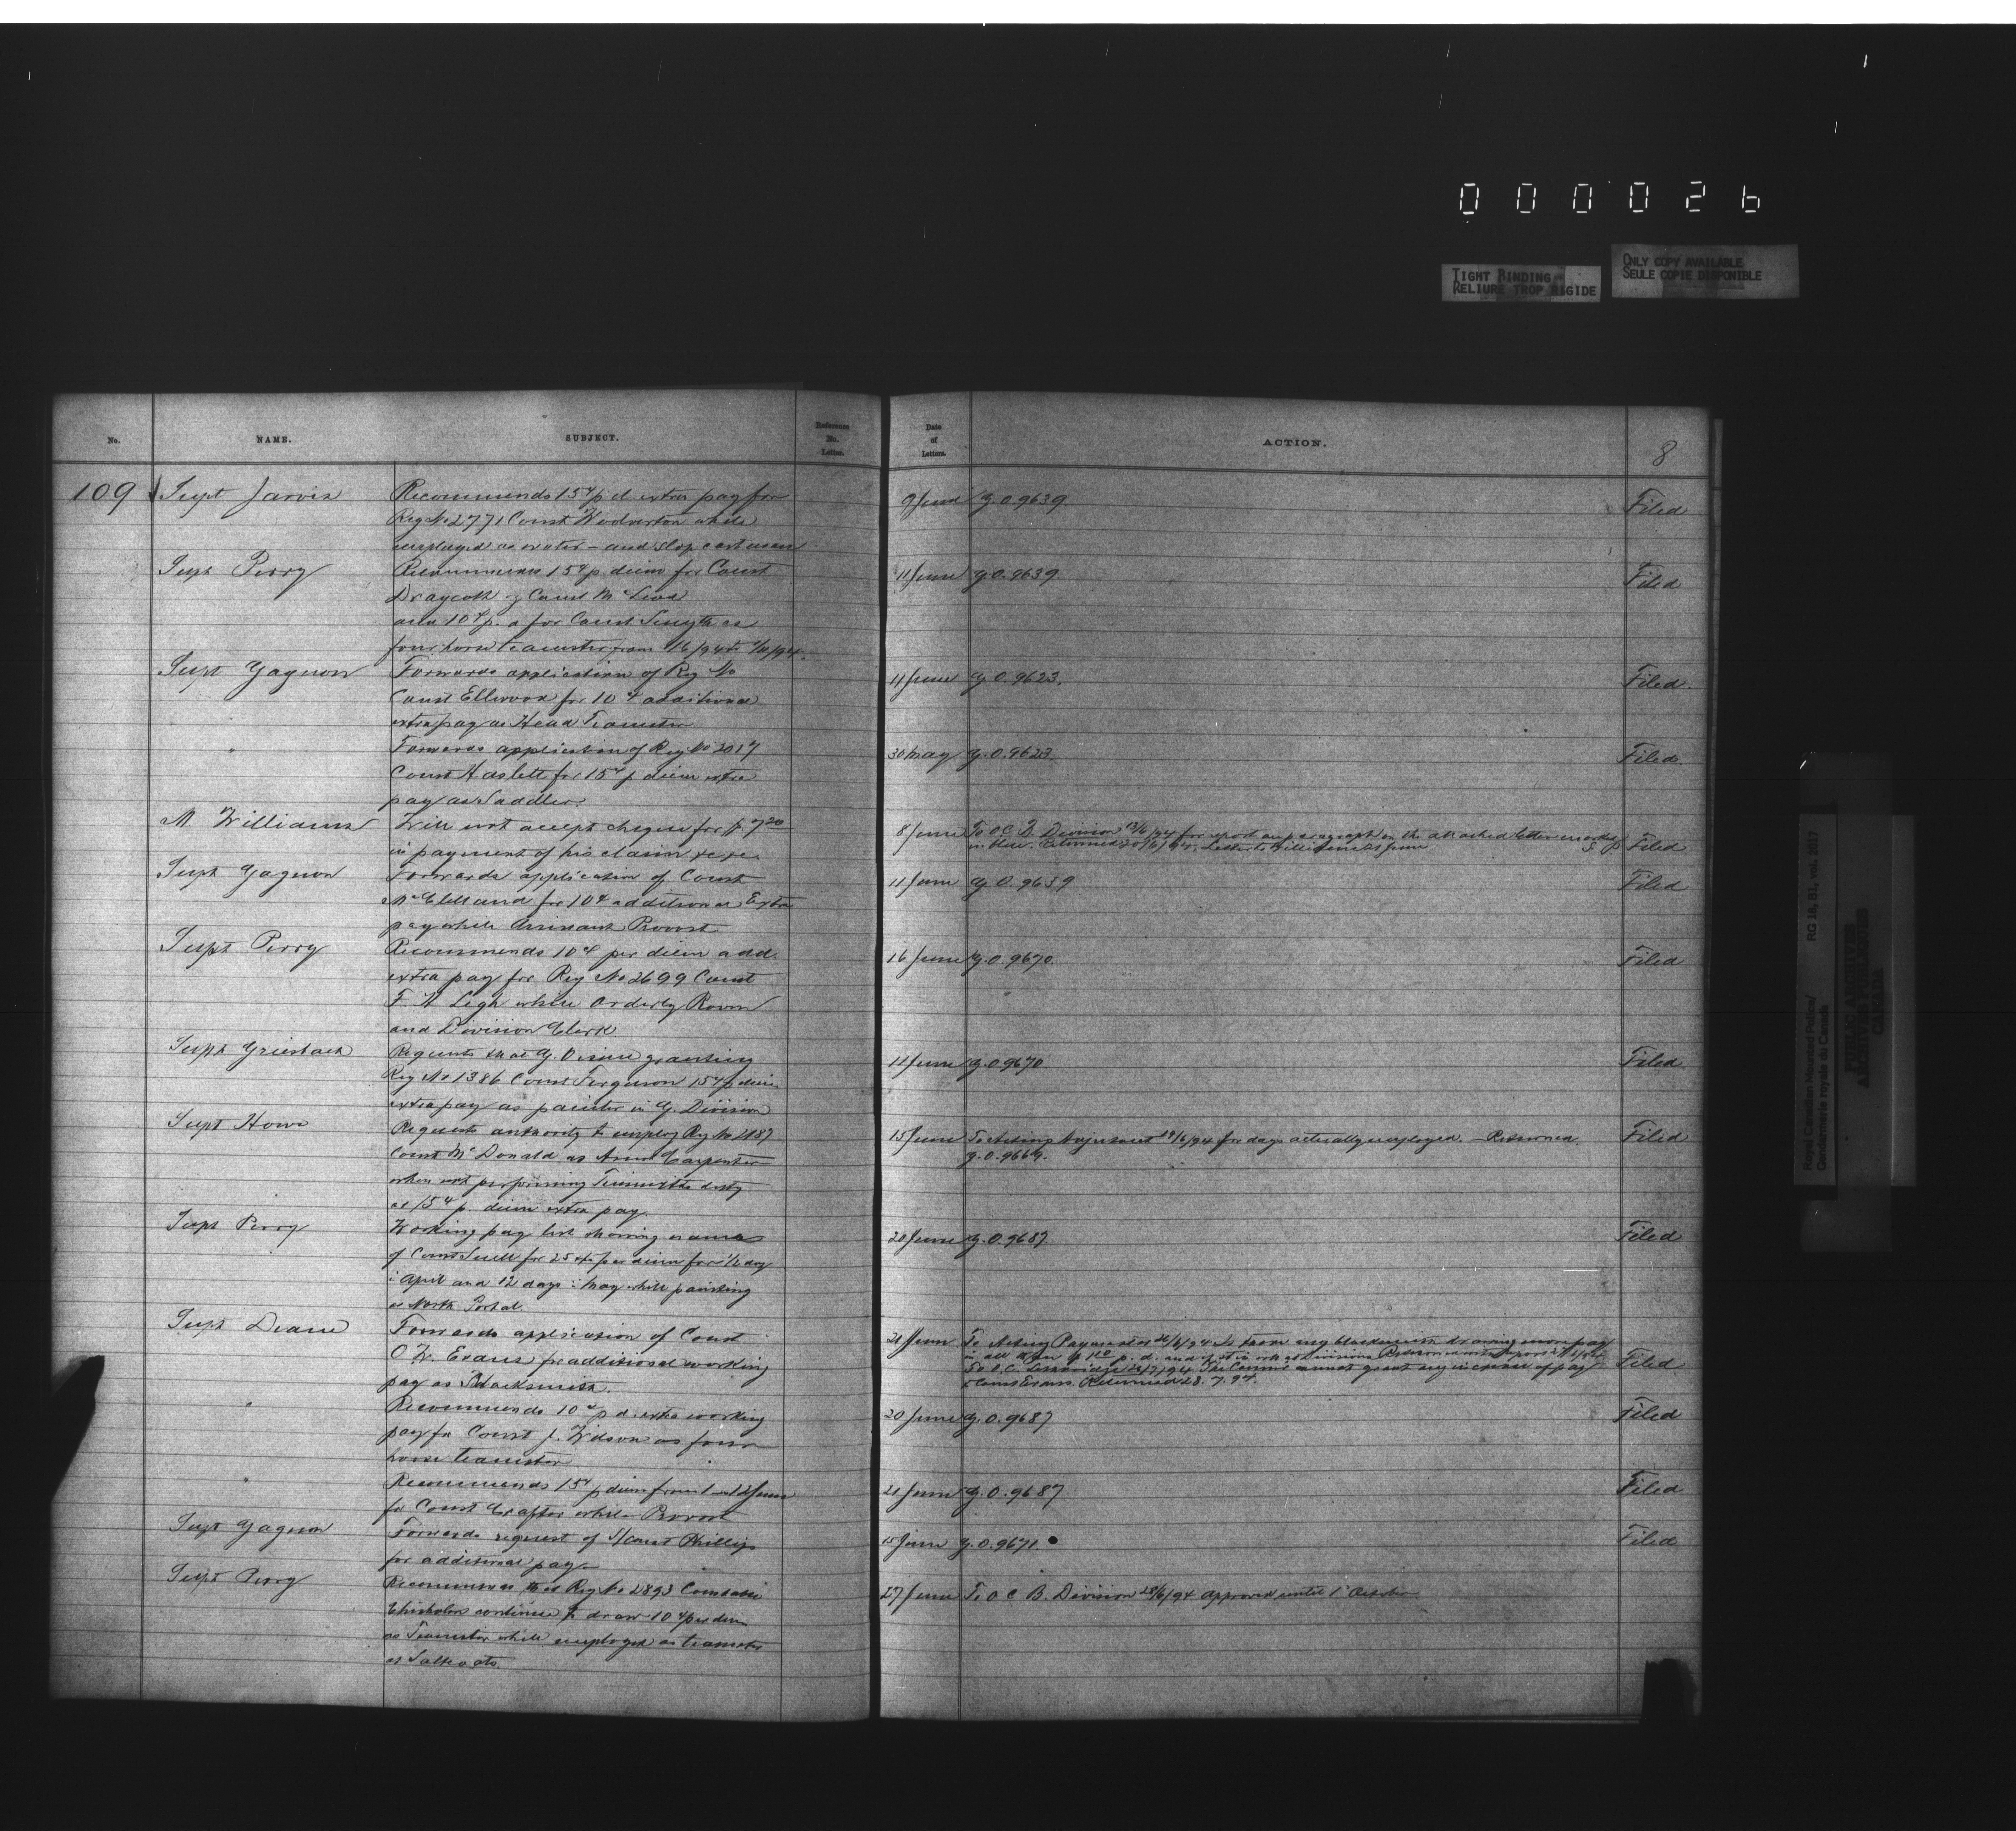 000026
TIGHT BINDING
RELIURE TROP RIGIDE
ONLY COPY AVAILABLE
SEULE COPIE DISPONIBLE
No.
NAME.
SUBJECT.
Reference No. Letter.
Date of Letters.
ACTION.
8
109 Supt Jarvis Recommends 15¢ p d extra pay for 9 June G.O. 9639. Filed
Reg No 2771 Const Wolverton while
employed as water - and slop cart man
Supt Perry Recommends 15¢ p. diem for Const 11 June G.O. 9639. Filed
Draycott & Const McLeod
and 10¢ p. d for Const Smyth as
four horse teamster from
Supt Gagnon Forwards application of Reg No 11 June G.O. 9623. Filed.
Const Ellwood for 10¢ additional
extra pay as Head Teamster
" Forwards application of Reg No 2017 30 May G.O. 9623. Filed.
Const Haslett for 15¢ p diem extra
pay as Saddler.
M Williams Will not accept cheque for $7.20 8 June To O.C. Division 13/6/94 for report on paragraph on the attached letter marked
in payment of his claim &c &c. in blue. Returned 20/6/94. Letter to Williams 21 June Filed
Supt Gagnon Forwards application of Const 11 June G.O. 9639 Filed
McClelland for 10¢ additional Extra
pay while Assistant Provost
Supt Perry Recommends 10¢ per diem add. 16 June G.O. 9670. Filed
extra pay for Reg No 2699 Const
Legh while Orderly Room
and Division Clerk
Supt Griesbach Requests that G. O issue granting 11 June G.O. 9670 Filed
Reg No 1386 Const Ferguson 15¢ p diem
extra pay as painter in G. Division
Supt Howe Requests authority to employ Reg No 2187 15 June To Acting Adjutant 19/6/94 for days actually employed. - Returned. Filed
Const McDonald as Carpenter G.O. 9669.
when not performing Tinsmiths duty
at 15¢ p. diem extra pay.
Supt Perry Working pay list showing names 20 June G.O. 9687. Filed
of Const Snell for 25 cts per diem for ½ day
in April and 12 days in May while painting
at North Portal.
Supt Deane Forwards application of Const 21 June To Acting Paymaster Is there any blacksmith drawing more pay
O W. Evans for additional working
pay as Blacksmith. To O.C. Lethbridge The Commr cannot grant any increase of pay Filed
to Const Evans. Returned 28. 7. 94.
" Recommends 10¢ p d. extra working 20 June G.O. 9687 Filed
pay for Const J. Wilson as four
horse teamster
" Recommends 15¢ p diem from 1 to 12 June 21 June G.O. 9687 Filed
for Const Crafter while Provost
Supt Gagnon Forwards request of S/Const Phillips 15 June G.O. 9671. Filed
for additional pay.
Supt Perry Recommends that Reg No 2893 Constable 27 June To O C B. Division 28/6/94 approved until 1st October
Chisholm continue to draw 10¢ per diem
as Teamster while employed as teamster
at Saltcoats.
Royal Canadian Mounted Police/
Gendarmerie royale du Canada
RG 18, B1, vol. 2017
PUBLIC ARCHIVES
ARCHIVES PUBLIQUES
CANADA